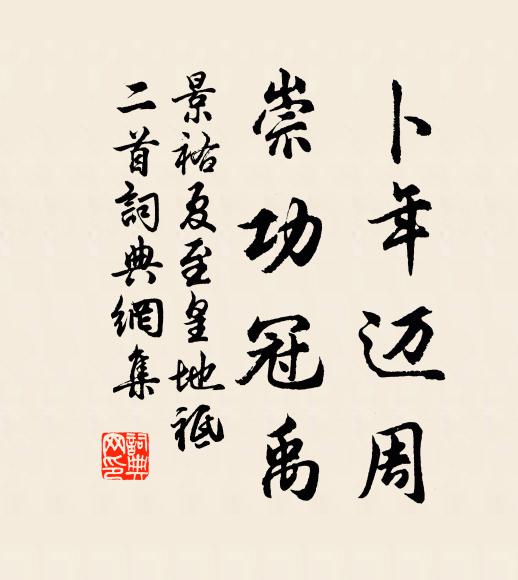 卜年迈周
崇功冠禹
景祐夏至皇地祇
二首詞典網集
詞典
网印